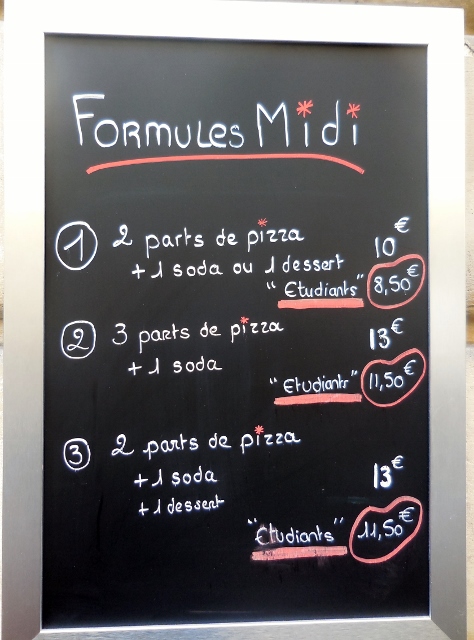 FORMULES Midi
1 2 parts de pizza 10€
+ 1 soda ou 1 dessert
"Etudiants" 8,50€
2 3 parts de pizza 13€
+ 1 soda
"Etudiants" 11,50€
3 2 parts de pizza
+ 1 soda 13€
+ 1 dessert
"Etudiants" 11,50€